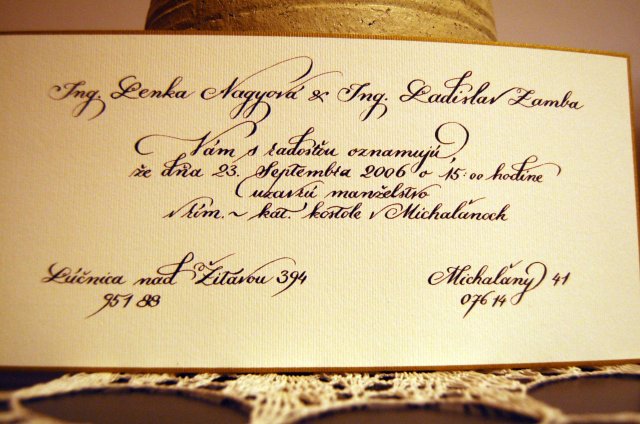 Ing. Lenka Nagyová & Ing. Ladislav Zamba
Vám s radosťou oznamujú,
že dňa 23. Septembra 2006 o 15:00 hodine
uzavrú manželstvo
v rím. ~ kat. kostole v Michaľanoch
Lúčnica nad Žitavou 394
951 88
Michaľany 41
076 14